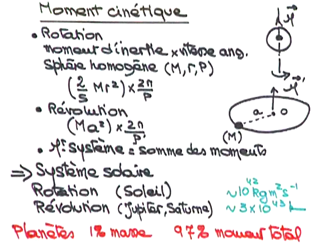 Moment cinétique
• Rotation
moment d'inertie × vitesse ang.
Sphère homogène (M, r, P)
(2/5 Mr²) × 2π/P
• Révolution
(Ma²) × 2π/P
a
o
(M)
• système = somme des moments
⇒ Système solaire
Rotation (Soleil) ~10⁴² kg m² s⁻¹
Révolution (Jupiter, Saturne) ~3×10⁴³
Planètes 1% masse 97% moment total